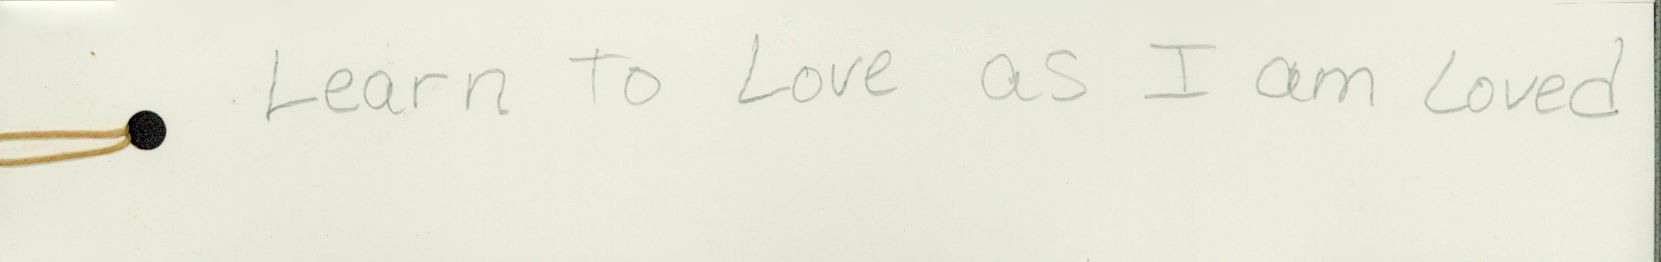 Learn To Love as I am Loved